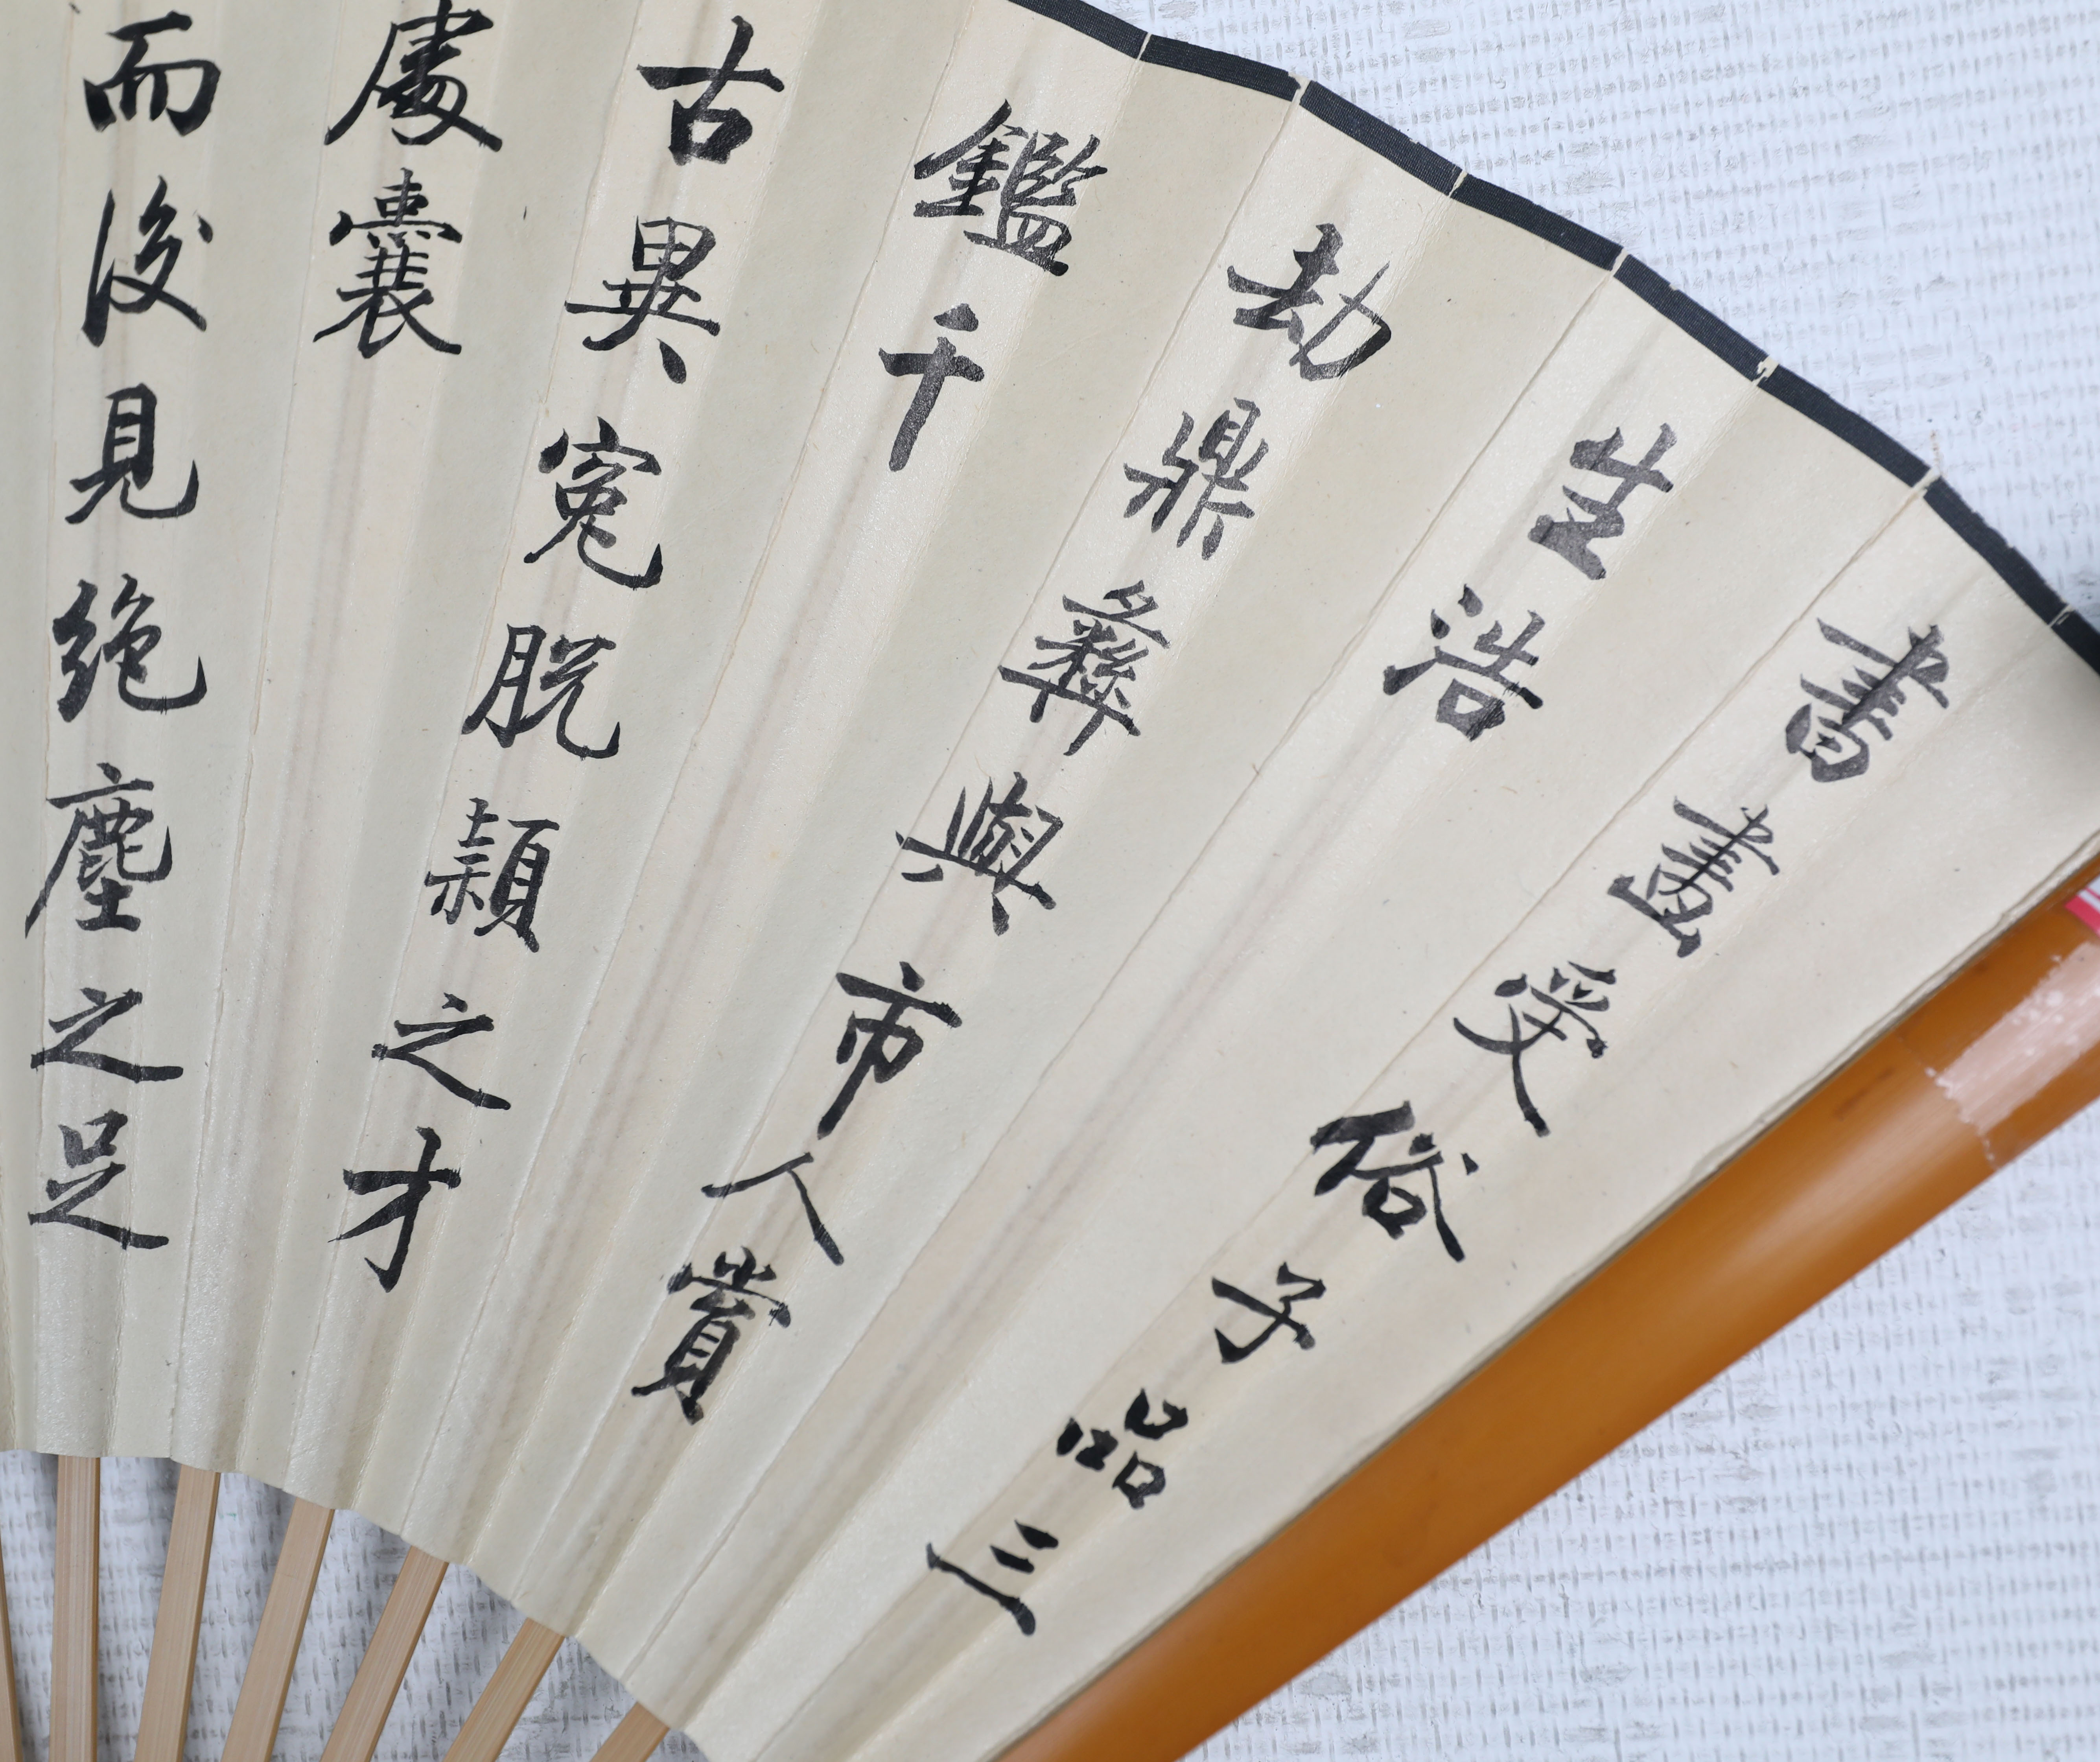 書畫受俗子品三
生浩
劫鼎彝與市人賞
鑑千
古異冤脱穎之才
處囊
而後見絶塵之足